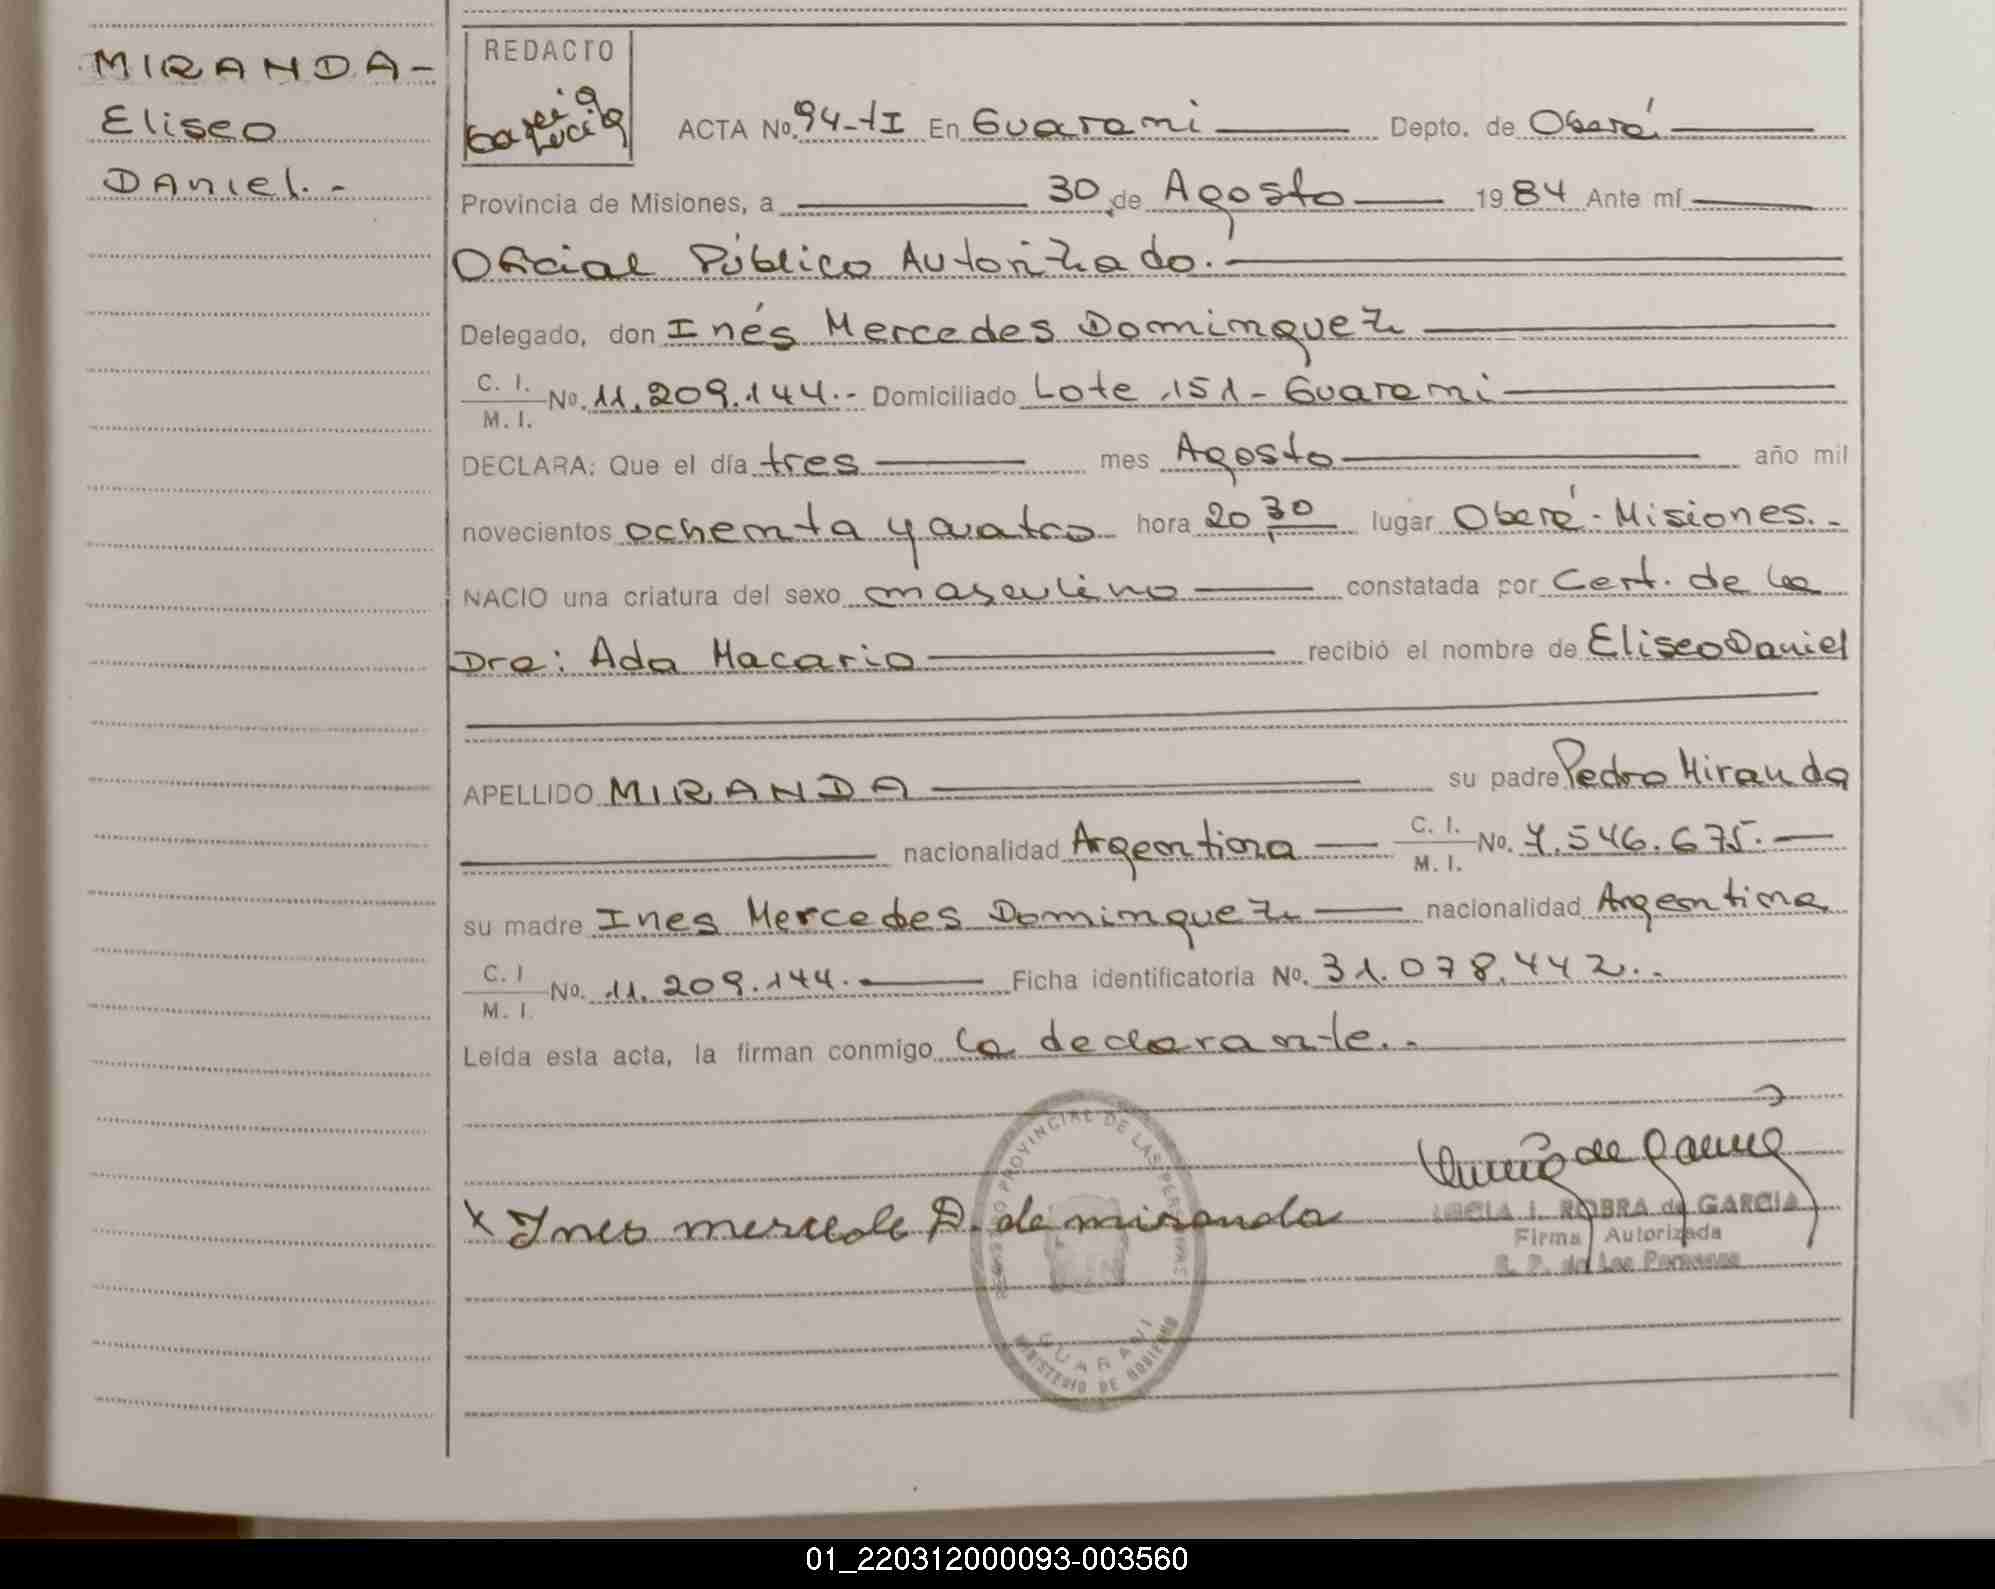 MIRANDA-
Eliseo
Daniel.-
REDACTO
García
Lucia
ACTA No. 94-tI En Guarani Depto. de Oberá
Provincia de Misiones, a 30 de Agosto 1984 Ante mí
Oficial Público Autorizado.
Delegado, don Inés Mercedes Dominguez
C. I.
M. I. No. 11.209.144.- Domiciliado Lote 151 - Guarani
DECLARA: Que el día tres mes Agosto año mil
novecientos ochenta y cuatro hora 20,30 lugar Oberá - Misiones.-
NACIO una criatura del sexo masculino constatada por Cert. de la
Dra: Ada Macario recibió el nombre de Eliseo Daniel
APELLIDO MIRANDA su padre Pedro Miranda
nacionalidad Argentina C. I.
M. I. No. 7.546.675.-
su madre Ines Mercedes Dominguez nacionalidad Argentina
C. I
M. I. No. 11.209.144. Ficha identificatoria No. 31.078.442..
Leída esta acta, la firman conmigo la declarante..
x Ines mercede D. de miranda
REGISTRO PROVINCIAL DE LAS PERSONAS
GUARANI
MINISTERIO DE GOBIERNO
LUCIA I. ROBRA de GARCIA
Firma Autorizada
R. P. de Las Personas
01_220312000093-003560